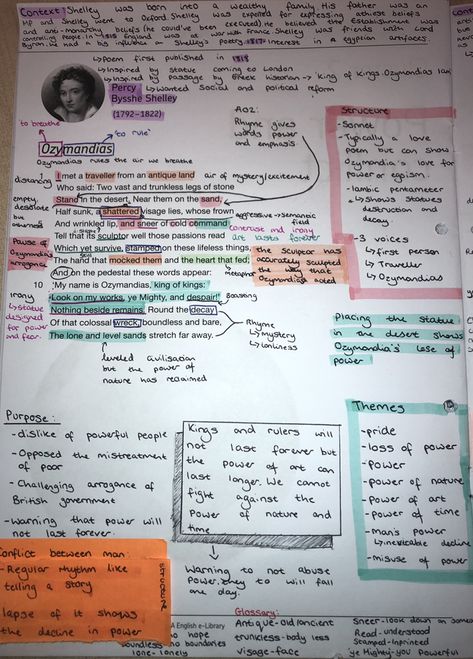 Context: Shelley was born into a wealthy family. His father was an
MP and Shelley went to Oxford. Shelley was expelled for expressing
and anti-monarchy beliefs (he could've been executed). He believed the establishment was
controlling people. In 1818 England was at war with France. Shelley was friends with Lord
Byron. interest in egyptian artefacts.
↳Poem first published in 1818
↳Inspired by statue coming to London
↳Inspired by passage by Greek historian → 'king of kings Ozymandias
↳Wanted social and political reform
Percy
Bysshe Shelley
(1792–1822)
'to breathe'
'to rule'
Ozymandias
Ozymandias rules the air we breathe
AO2:
Rhyme gives
words power
and emphasis.
distancing
I met a traveller from an antique land
air of mystery/excitement
Who said: Two vast and trunkless legs of stone
empty,
desolate
but
Stand in the desert. Near them on the sand,
Half sunk, a shattered visage lies, whose frown
aggressive → semantic
field
And wrinkled lip, and sneer of cold command
contrast and irony
Tell that its sculptor well those passions read
art lasts forever
Pause of
Ozymandias
arrogance
Which yet survive, stamped on these lifeless things,
The hand that mocked them and the heart that fed;
metaphor
the sculptor has
accurately sculpted
the way that
Ozymandias acted
And on the pedestal these words appear:
10 'My name is Ozymandias, king of kings:
irony
↳statue
designed
for power
and fear.
Look on my works, ye Mighty, and despair!'
Boasting
Nothing beside remains. Round the decay
Of that colossal wreck, boundless and bare,
The lone and level sands stretch far away.
Rhyme
↳mystery
↳lonliness
leveled civilisation
but the power of
nature has reclaimed
Structure
-Sonnet
-Typically a love
poem but can show
Ozymandia's love for
power or egoism.
-Iambic pentameter
↳Shows statues
destruction and
decay.
-3 voices
↳first person
↳Traveller
↳Ozymandias
Placing the statue
in the desert shows
Ozymandia's lose of
power
Purpose:
-dislike of powerful people
-Opposed the mistreatment
of poor
-Challenging arrogance of
British government
-warning that power will
not last forever.
Kings and rulers will
not last forever but
the power of art can
last longer. We cannot
fight against the
Power of nature and
time
Warning to not abuse
Power. they to will fall
one day.
Themes
-pride
-loss of power
-power
-power of nature
-power of art
-power of time
-man's power
↳inevitable decline
-misuse of power
Conflict between man.
-Regular rhythm like
telling a story
lapse of it shows
the decline in power
structure
A English e-Library
Glossary:
no hope
boundless-no boundaries
lone-lonely
Antique-old/ancient
trunkless-body less
visage-face
Sneer-look down on
Read-understood
Stamped-Inprinted
ye Mighty-you powerful